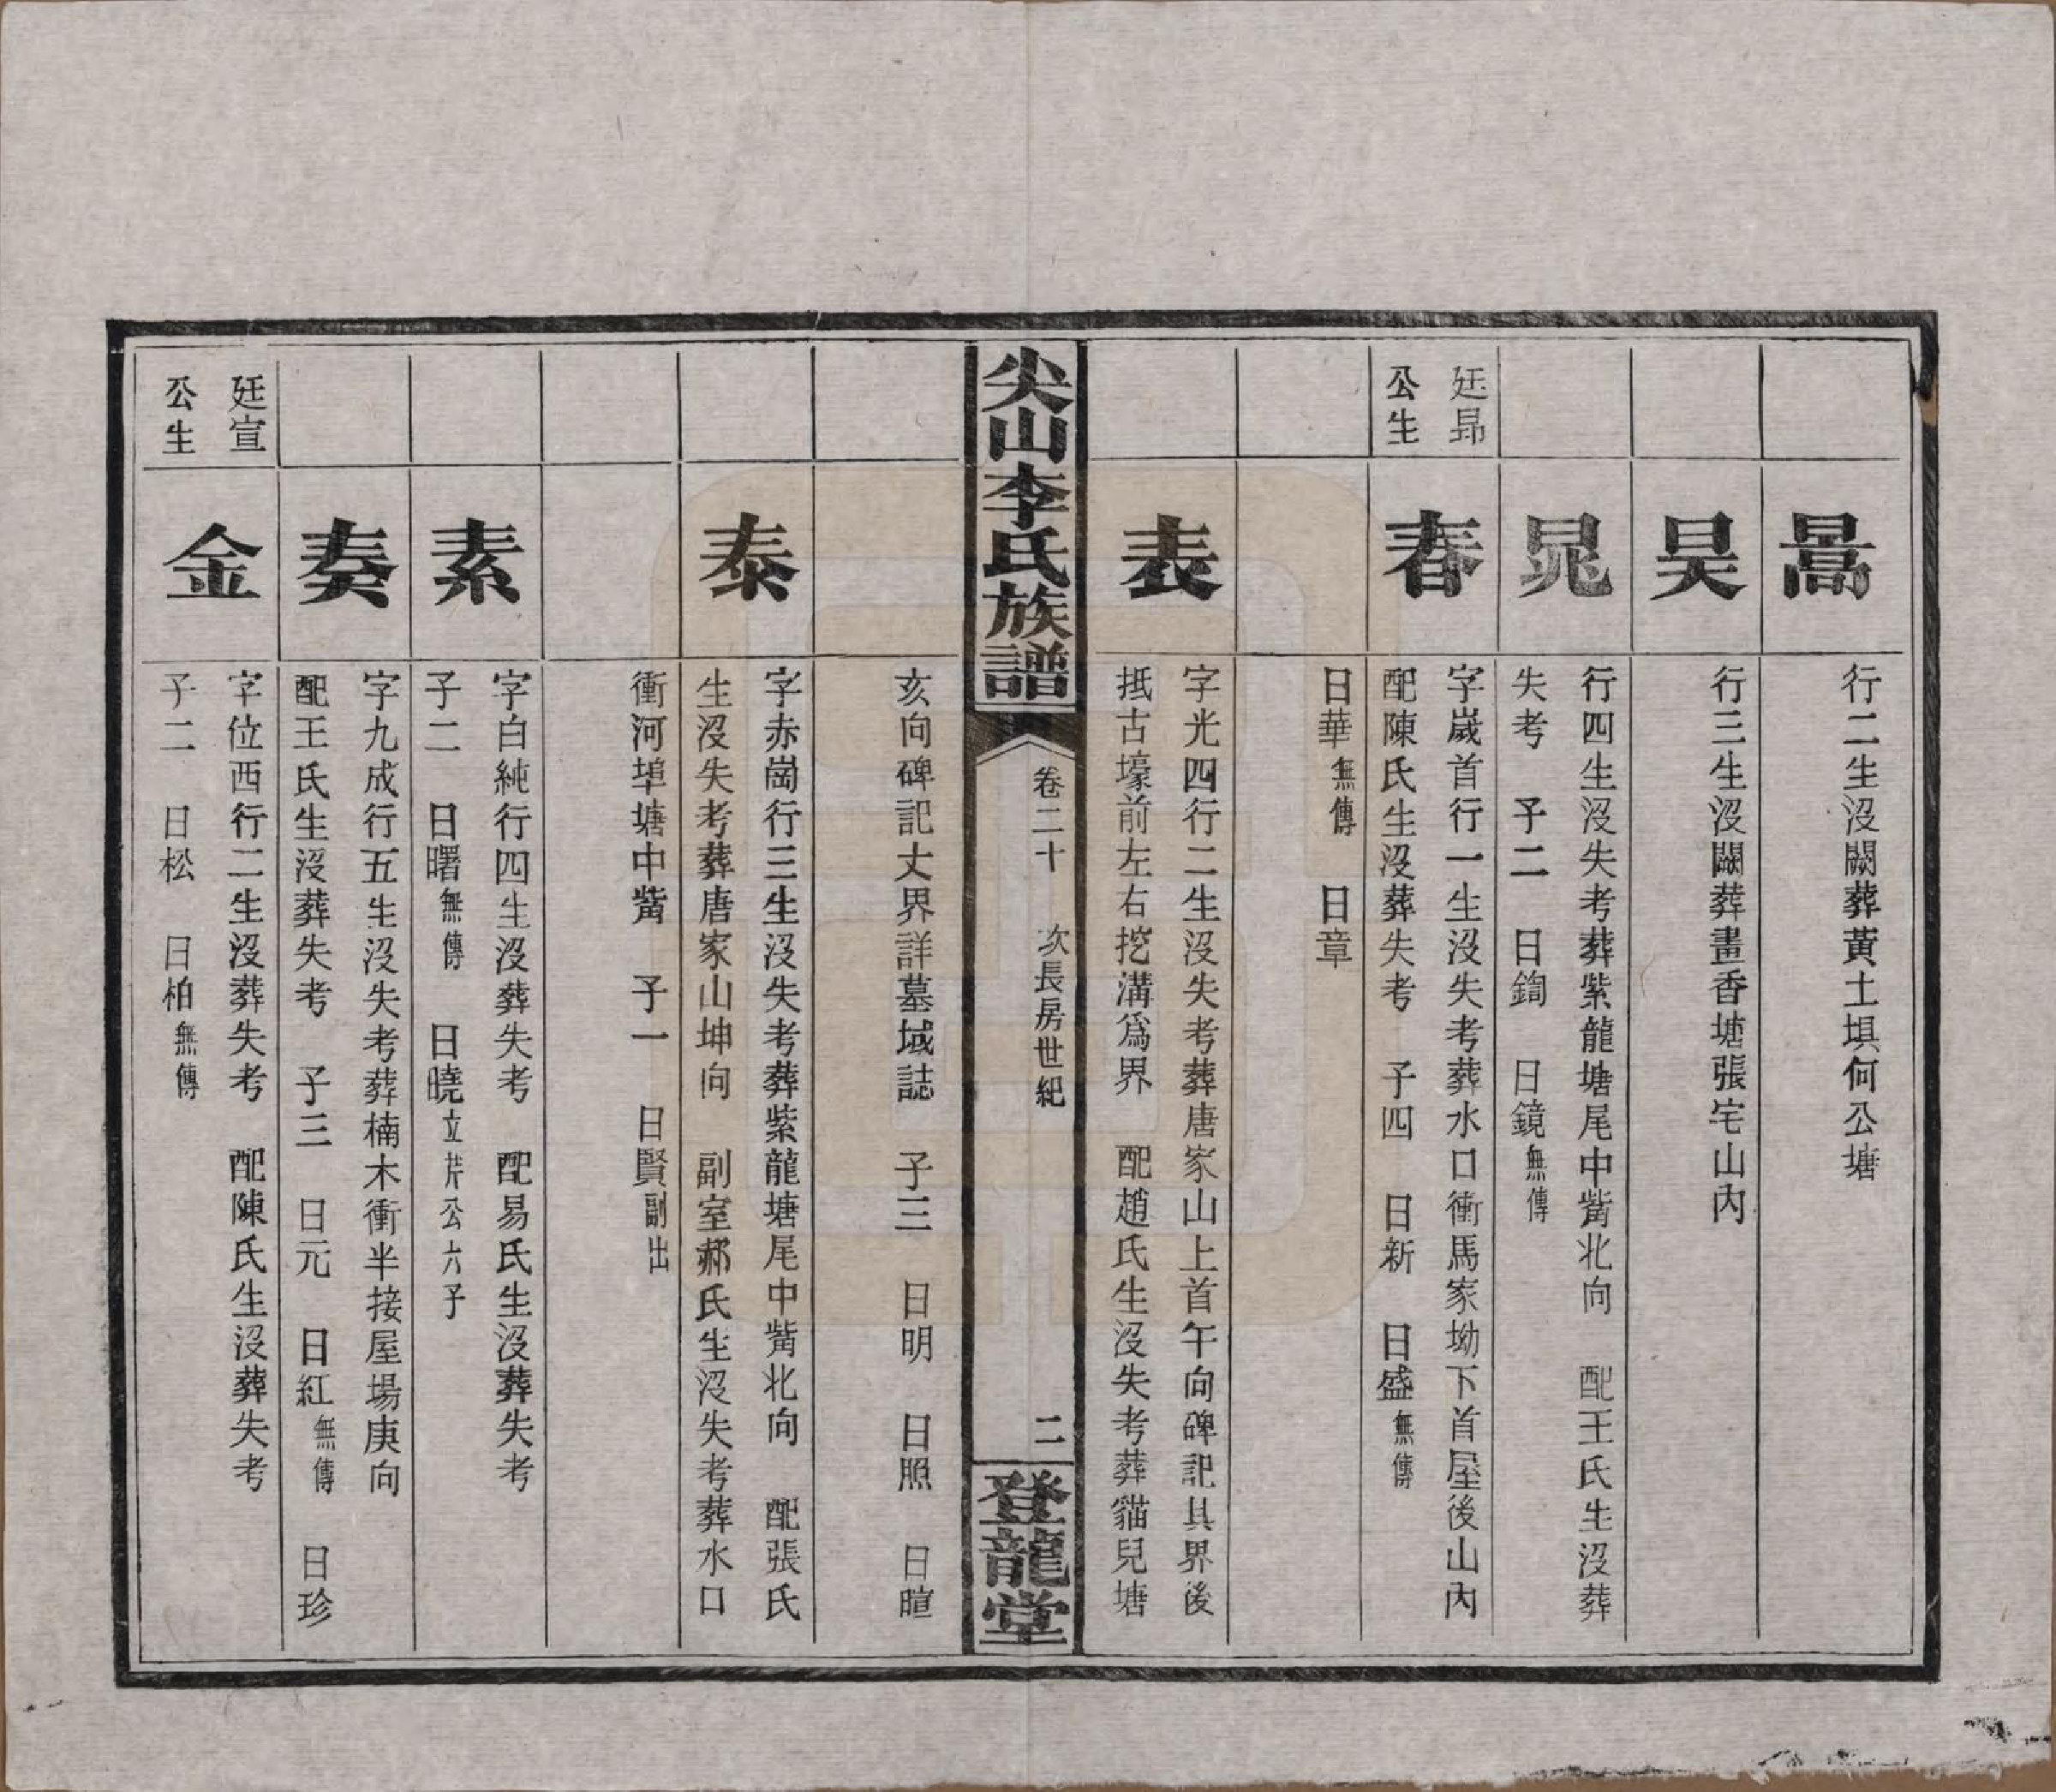 暠
行二生沒闕葬黃土塤何公塘
昊
行三生沒闕葬畫香塘張宅山內
晁
行四生沒失考葬紫龍塘尾中觜北向 配王氏生沒葬
失考 子二 日鍧 日鏡無傳
廷昴
公生
春
字崴首行一生沒失考葬水口衝馬家坳下首屋後山內
配陳氏生沒葬失考 子四 日新 日盛無傳
日華無傳 日章
表
字光四行二生沒失考葬唐家山上首午向碑記其界後
抵古壕前左右挖溝爲界 配趙氏生沒失考葬貓兒塘
尖山李氏族譜
卷二十 次長房世紀
二
登龍堂
亥向碑記丈界詳墓域誌 子三 日明 日照 日暄
泰
字赤崗行三生沒失考葬紫龍塘尾中觜北向 配張氏
生沒失考葬唐家山坤向 副室郝氏生沒失考葬水口
衝河埠塘中觜 子一 日賢副出
素
字白純行四生沒葬失考 配易氏生沒葬失考
子二 日曙無傳 日曉立芹公六子
奏
字九成行五生沒失考葬楠木衝半接屋場庚向
配王氏生沒葬失考 子三 日元 日紅無傳 日珍
廷宣
公生
金
字位西行二生沒葬失考 配陳氏生沒葬失考
子二 日松 日柏無傳